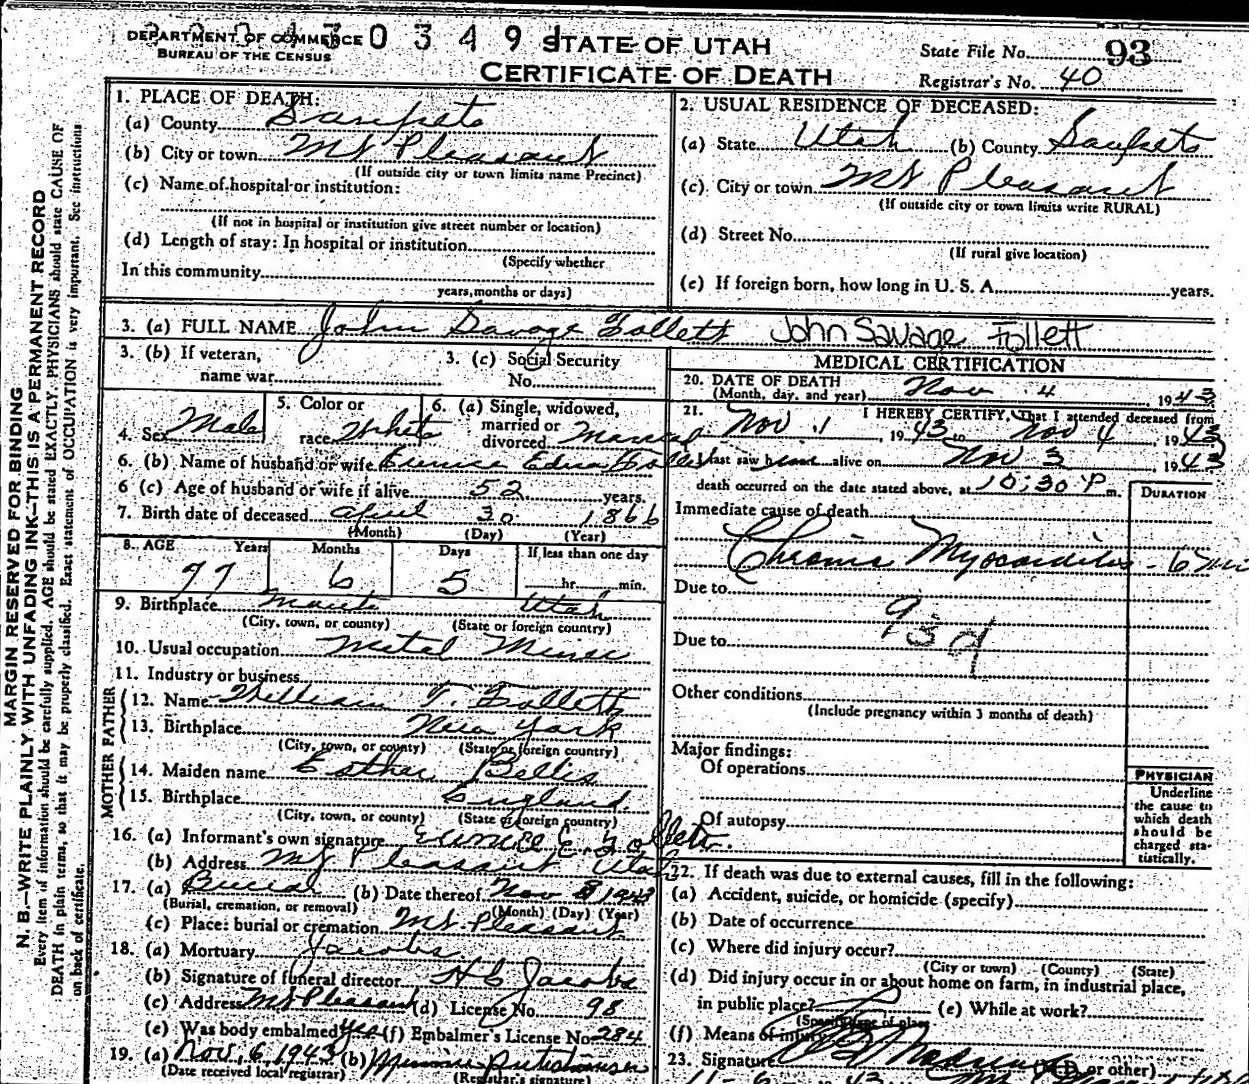 DEPARTMENT OF COMMERCE
BUREAU OF THE CENSUS
0 3 4 9
STATE OF UTAH
CERTIFICATE OF DEATH
State File No. 93
Registrar's No. 40
MARGIN RESERVED FOR BINDING
N. B.—WRITE PLAINLY WITH UNFADING INK—THIS IS A PERMANENT RECORD
Every item of information should be carefully supplied. AGE should be stated EXACTLY. PHYSICIANS should state CAUSE OF
DEATH in plain terms, so that it may be properly classified. Exact statement of OCCUPATION is very important. See instructions
on back of certificate.
1. PLACE OF DEATH:
(a) County Sanpete
(b) City or town Mt Pleasant
(If outside city or town limits name Precinct)
(c) Name of hospital or institution:
(If not in hospital or institution give street number or location)
(d) Length of stay: In hospital or institution
(Specify whether
In this community
years, months or days)
2. USUAL RESIDENCE OF DECEASED:
(a) State Utah (b) County Sanpete
(c) City or town Mt Pleasant
(If outside city or town limits write RURAL)
(d) Street No.
(If rural give location)
(e) If foreign born, how long in U. S. A. years.
3. (a) FULL NAME John Savage Follett John Savage Follett
3. (b) If veteran, name war
3. (c) Social Security No.
4. Sex Male
5. Color or race White
6. (a) Single, widowed, married or divorced Married
6. (b) Name of husband or wife Eunice Edna Follett
6 (c) Age of husband or wife if alive 52 years.
7. Birth date of deceased April 30 1866
(Month) (Day) (Year)
8. AGE Years Months Days If less than one day
77 6 5 hr. min.
9. Birthplace Manti Utah
(City, town, or county) (State or foreign country)
10. Usual occupation Metal Miner
11. Industry or business
FATHER
12. Name William T. Follett
13. Birthplace New York
(City, town, or county) (State or foreign country)
MOTHER
14. Maiden name Esther Bellis
15. Birthplace England
(City, town, or county) (State or foreign country)
16. (a) Informant's own signature Eunice E. Follett.
(b) Address Mt Pleasant Utah
17. (a) Burial (b) Date thereof Nov 8 1943
(Burial, cremation, or removal) (Month) (Day) (Year)
(c) Place: burial or cremation Mt. Pleasant
18. (a) Mortuary Jacobs
(b) Signature of funeral director H C Jacobs
(c) Address Mt Pleasant (d) License No. 98
(e) Was body embalmed yes (f) Embalmer's License No. 284
19. (a) Nov. 6, 1943 (b)
(Date received local registrar) (Registrar's signature)
MEDICAL CERTIFICATION
20. DATE OF DEATH
(Month, day, and year) Nov 4 1943
21. I HEREBY CERTIFY, That I attended deceased from
Nov 1, 1943 to Nov 4, 1943
I last saw him alive on Nov 3 1943
death occurred on the date stated above, at 10:30 P m.
DURATION
Immediate cause of death
Chronic Myocarditis - 6
Due to
93d
Due to
Other conditions
(Include pregnancy within 3 months of death)
Major findings:
Of operations
Of autopsy
PHYSICIAN
Underline
the cause to
which death
should be
charged sta-
tistically.
22. If death was due to external causes, fill in the following:
(a) Accident, suicide, or homicide (specify)
(b) Date of occurrence
(c) Where did injury occur?
(City or town) (County) (State)
(d) Did injury occur in or about home on farm, in industrial place,
in public place? (e) While at work?
(Specify type of place)
(f) Means of injury
23. Signature (M. D. or other)
11-6-43